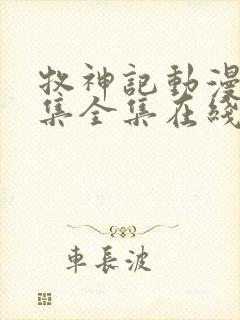 牧神記動漫
集全集在綫
車長波